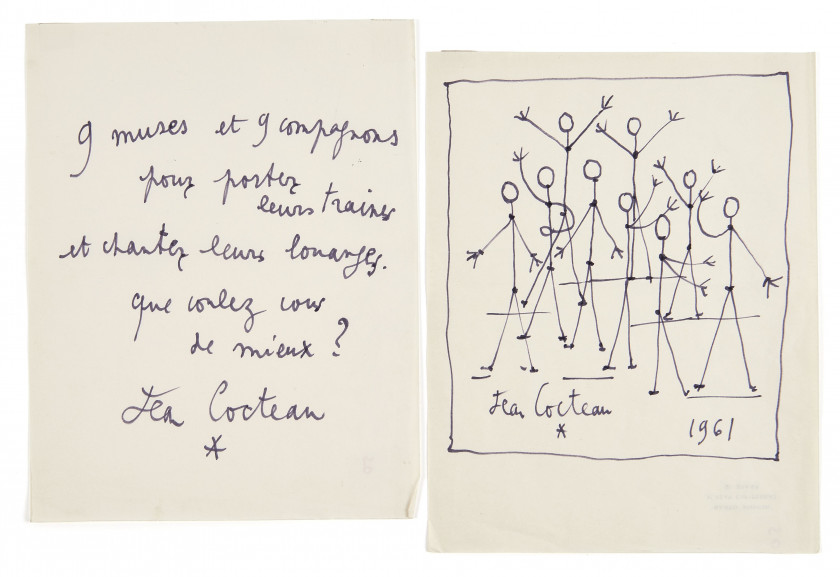 9 muses et 9 compagnons
pour porter
leurs traines
et chanter leurs louanges.
que voulez vous
de mieux ?
Jean Cocteau
Jean Cocteau
1961